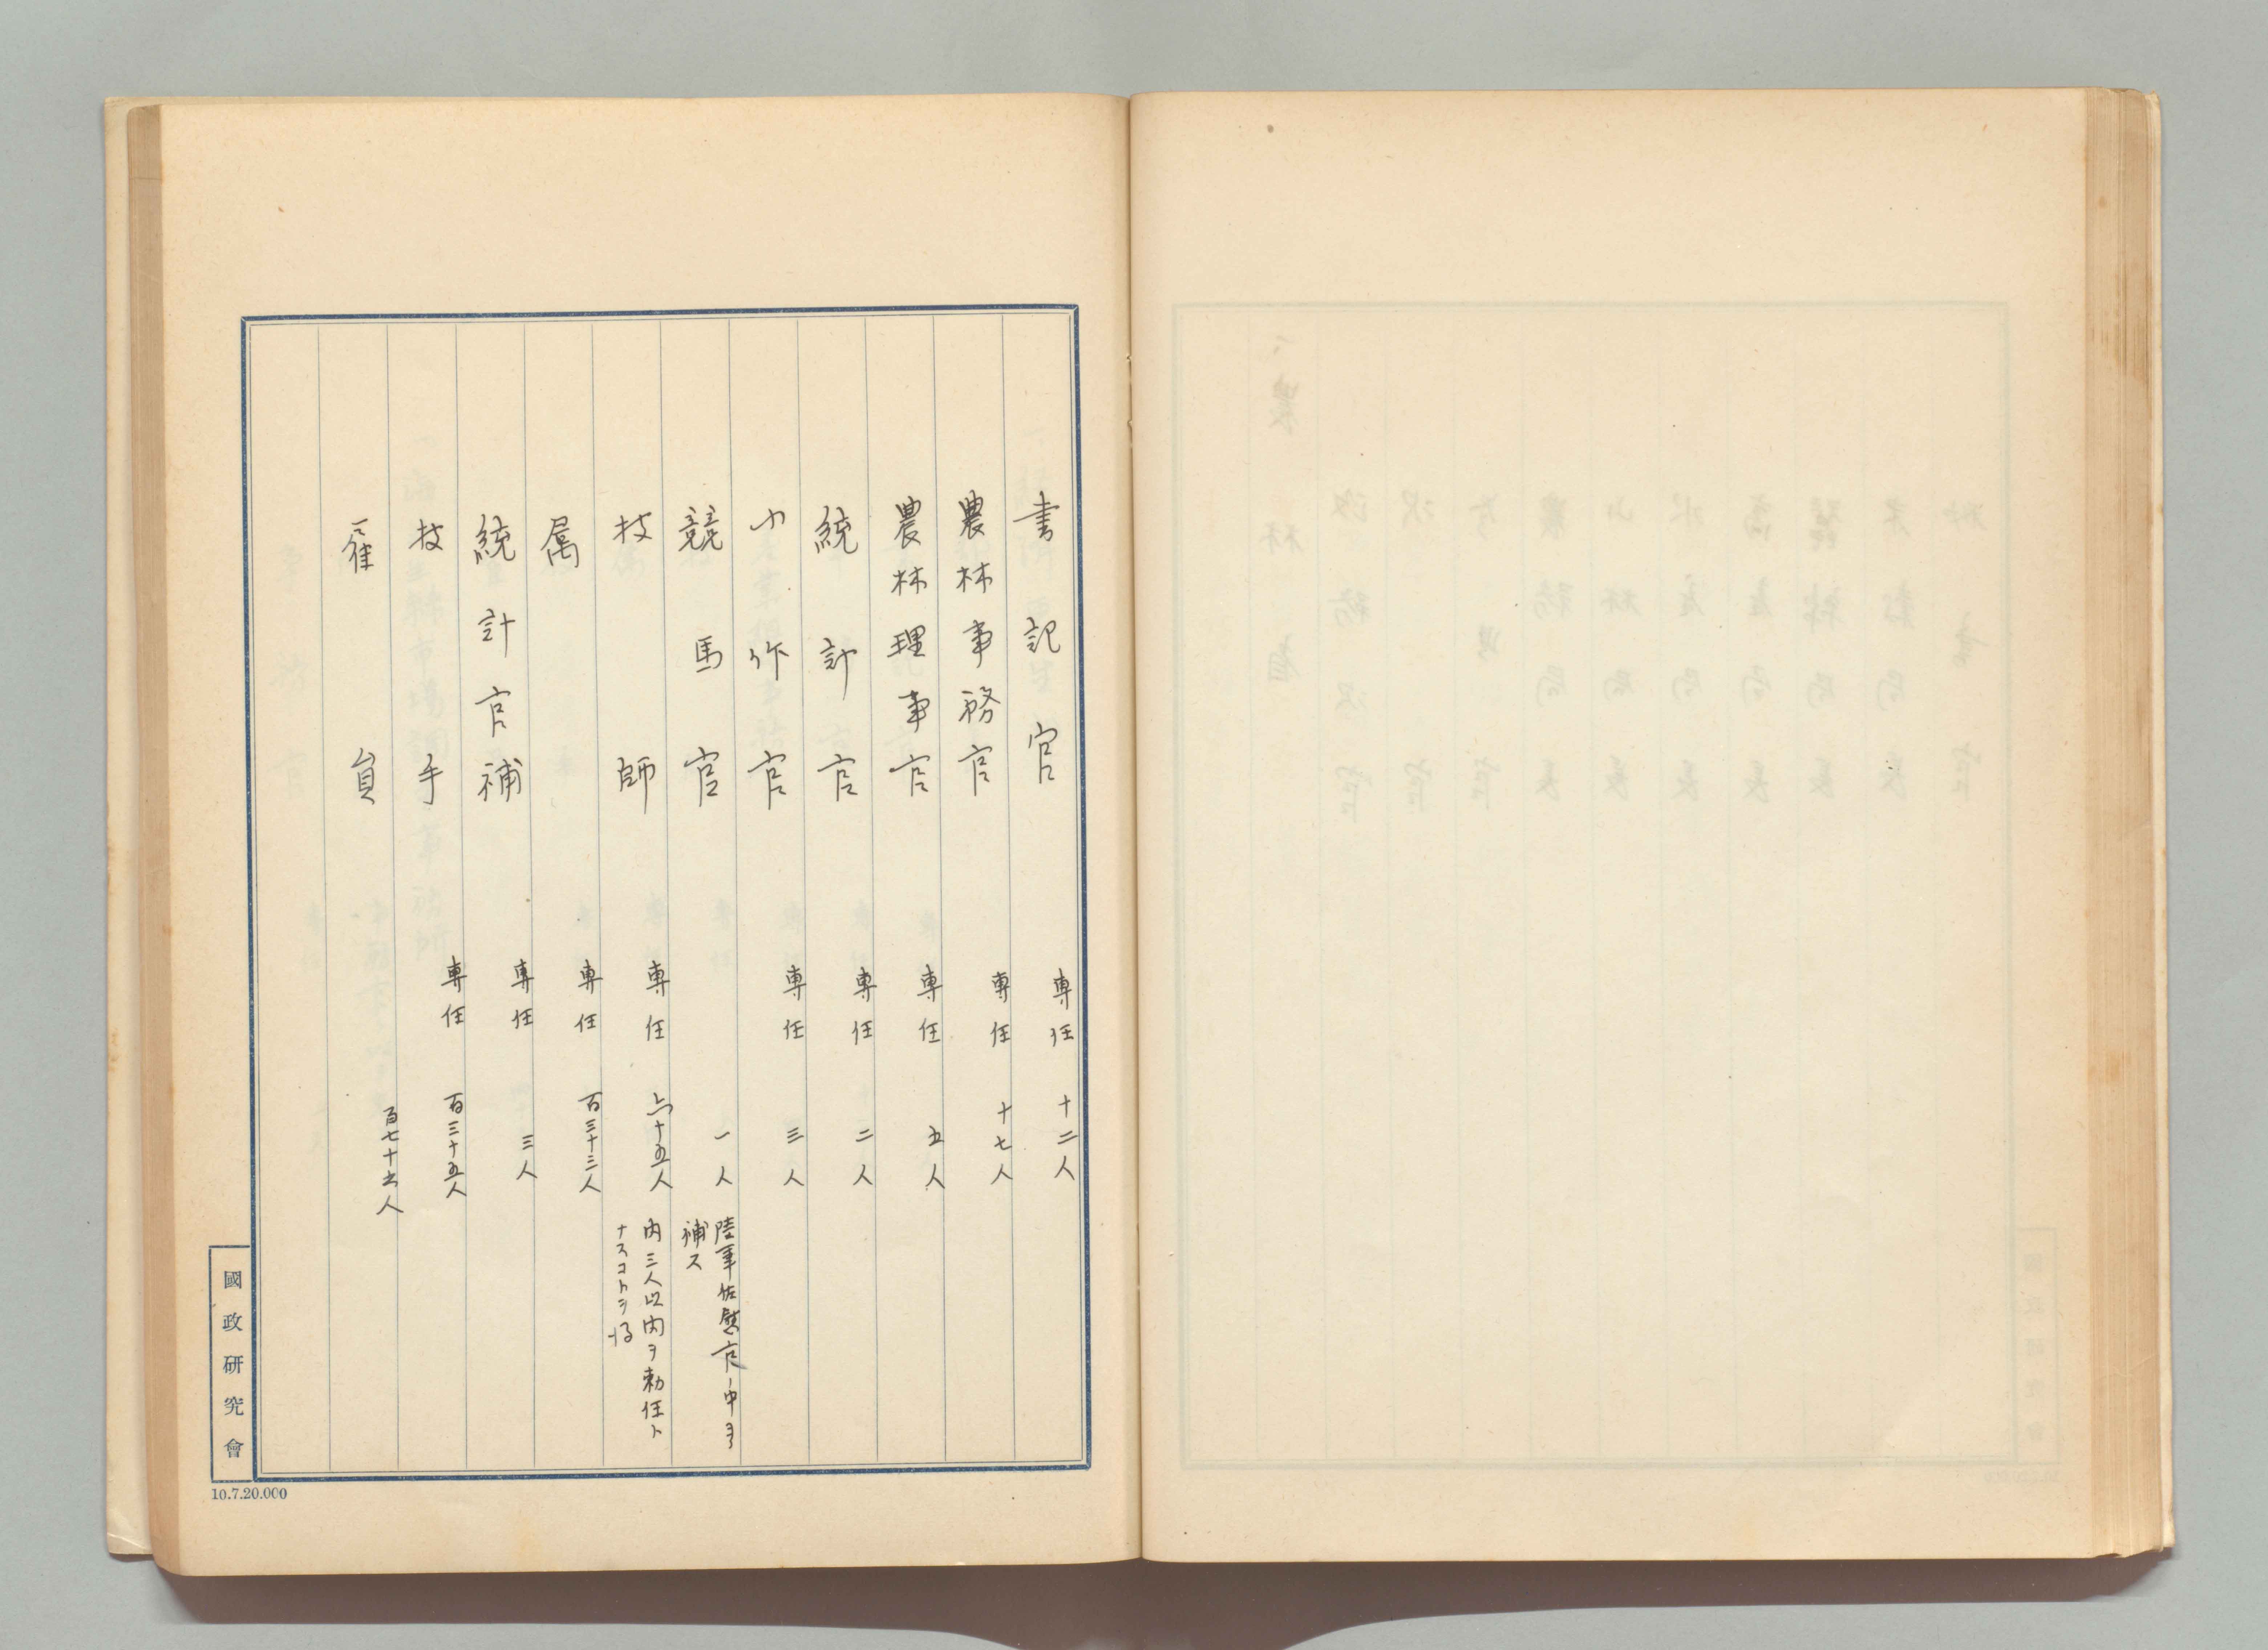 書記官 専任 十二人
農林事務官 専任 十七人
農林理事官 専任 五人
統計官 専任 二人
小作官 専任 三人
競馬官 一人 陸軍佐尉官ノ中ヨリ
補ス
技師 専任 六十五人 内三人以内ヲ勅任ト
ナスコトヲ得
属 専任 百三十三人
統計官補 専任 三人
技手 専任 百三十五人
雇員 百七十 人
國政研究會
10.7.20.000